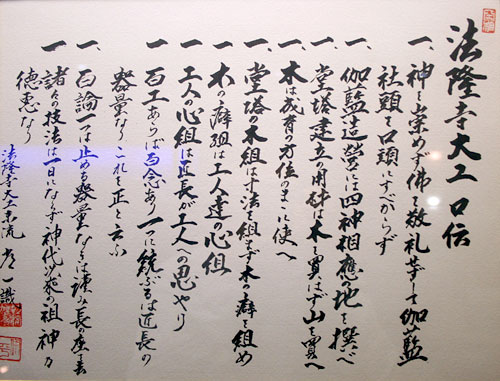 法隆寺大工 口伝
一、神を崇めず佛を敬礼せずして伽藍
社頭を口頭にすべからず
一、伽藍造営には四神相應の地を撰べ
一、堂塔建立の用材は木を買はず山を買へ
一、木は成育の方位のまゝに使へ
一、堂塔の木組は寸法を組まず木の癖を組め
一、木の癖組は工人達の心組
一、工人の心組は匠長が工人への思やり
一、百工あらば百念あり 一つに統ぶるは匠長の
器量なり これを正と云ふ
一、百論一つに止める器量なきは謹み匠長の座を去れ
一、諸々の技法は一日にならず神代以来の祖神の
徳恵なり
法隆寺大工末流